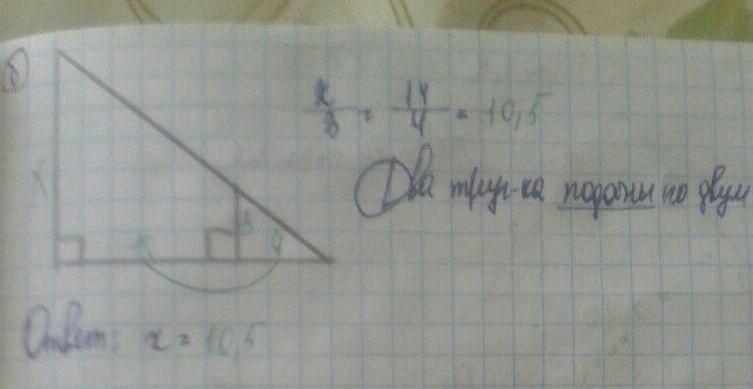 б)
x/3 = 14/4 = 10,5
x
3
4
Два треуг-ка подобны по двум
Ответ: x = 10,5